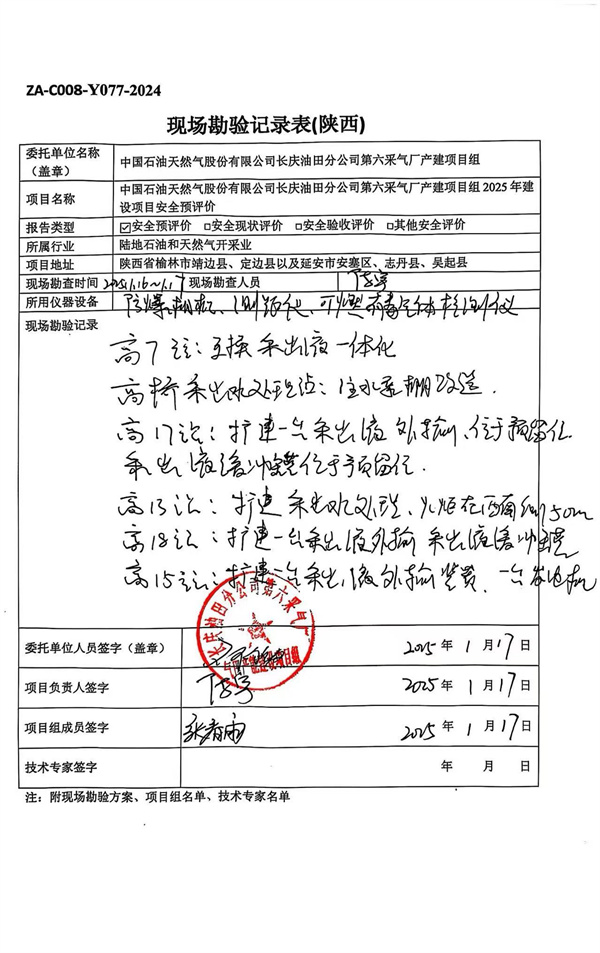 ZA-C008-Y077-2024
现场勘验记录表(陕西)
委托单位名称（盖章） 中国石油天然气股份有限公司长庆油田分公司第六采气厂产建项目组
项目名称 中国石油天然气股份有限公司长庆油田分公司第六采气厂产建项目组2025年建
设项目安全预评价
报告类型 ☑安全预评价 □安全现状评价 □安全验收评价 □其他安全评价
所属行业 陆地石油和天然气开采业
项目地址 陕西省榆林市靖边县、定边县以及延安市安塞区、志丹县、吴起县
现场勘查时间 2025.1.16~1.17 现场勘查人员
所用仪器设备 防爆相机、测距仪、可燃有毒气体检测仪
现场勘验记录
高7站：更换采出液一体化
高桥采出水处理站：注水泵棚改造.
高17站：扩建一台采出液外输、位于预留位
采出液缓冲罐位于预留位.
高13站：扩建采出水处理、火炬在西面约150m
高18站：扩建一台采出液外输 采出液缓冲罐
高15站：扩建一台采出液外输装置、一台发电机
长庆油田分公司第六采气厂
产建项目组
委托单位人员签字（盖章） 2025年1月17日
项目负责人签字 2025年1月17日
项目组成员签字 张春雨 2025年1月17日
技术专家签字 年 月 日
注：附现场勘验方案、项目组名单、技术专家名单